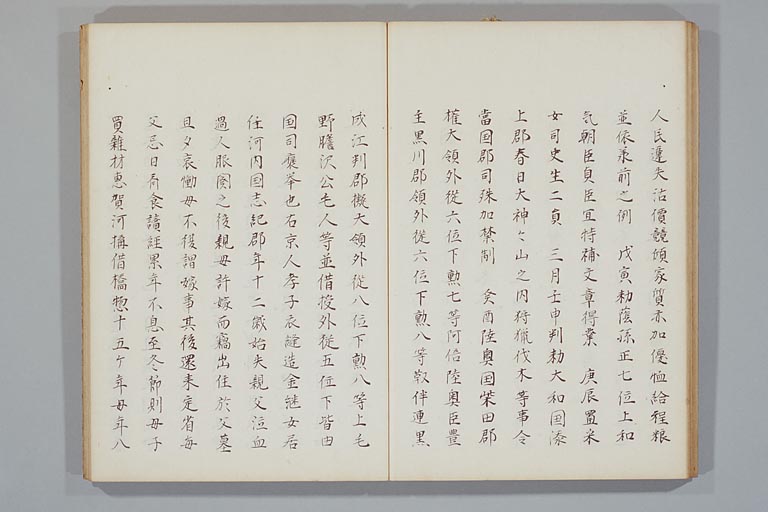 人民遑失沽價競傾家質亦加優恤給程粮
並依承前之例　戊寅勅蔭孫正七位上和
氣朝臣貞臣宜特補文章得業　庚辰置采
女司史生二員　三月壬申判勅大和国添
上郡春日大神々山之内狩獵伐木等事令
當国郡司殊加禁制　癸酉陸奥国柴田郡
權大領外從六位下勲七等阿倍陸奥臣豊
主黒川郡領外從六位下勲八等靫伴連黒
成江刺郡擬大領外從八位下勲八等上毛
野膽沢公毛人等並借授外從五位下皆由
国司褒舉也右京人孝子衣縫造金継女居
住河内国志紀郡年十二歳始失親父泣血
過人服闋之後親母許嫁而竊出住於父墓
旦夕哀慟母不復謂嫁事其後還来定省毎
父忌日斎食讀經累年不息至冬節則母子
買雜材恵賀河搆借橋惣十五ケ年母年八